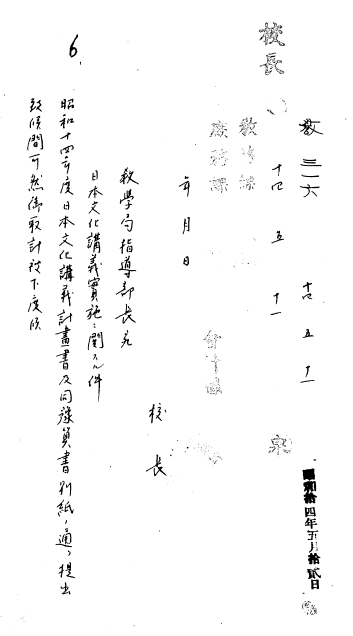 昭和拾四年五月拾貳日
教 三一六
十四 五 十一
十四 五 十一
教務課
庶務課
会計課
校長
年 月 日
校 長
教学局指導部長宛
日本文化講義實施ニ関スル件
昭和十四年度日本文化講義計畫書及同豫算書別紙ノ通リ提出
致候間可然御取計被下度候
6.